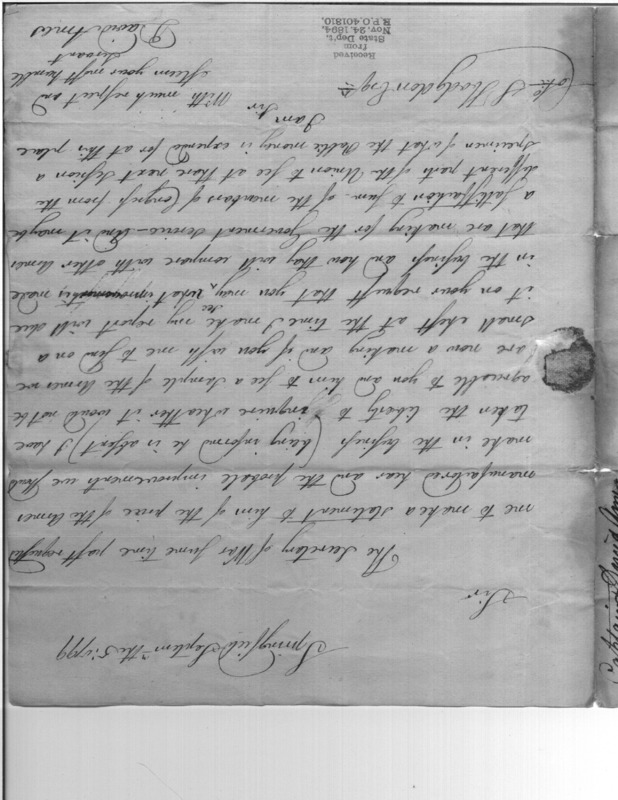 Springfield Septem the 5: 1799
Sir
The Secretary of War some time past requested
me to make a statement to him of the price of the Armes
manufactored hear and the probable improvements we shall
make in the busyness (being informd he is absent) I have
taken the liberty to inquire whather it would not be
agreeable to you and him to see a sample of the Armes we
are now a making and if you wish me to send on a
small chest at the time I make my report will due
it on your request that you may see what is made
in the busyness and how they will compare with other Armes
that are making for the Goverment service – And it maybe
a sattisfaction to sum of the members of Congress from the
different parts of the Union to see at there next session a
specimen of what the Publie money is expend for at this place
I am
Sir
With much respect and
esteem your most humble
servant
David Ames
S Hodgdon Esqr
Received
from
State Dep't.
Nov. 24, 1894.
R.P.O. 401810.
Captain David Ames